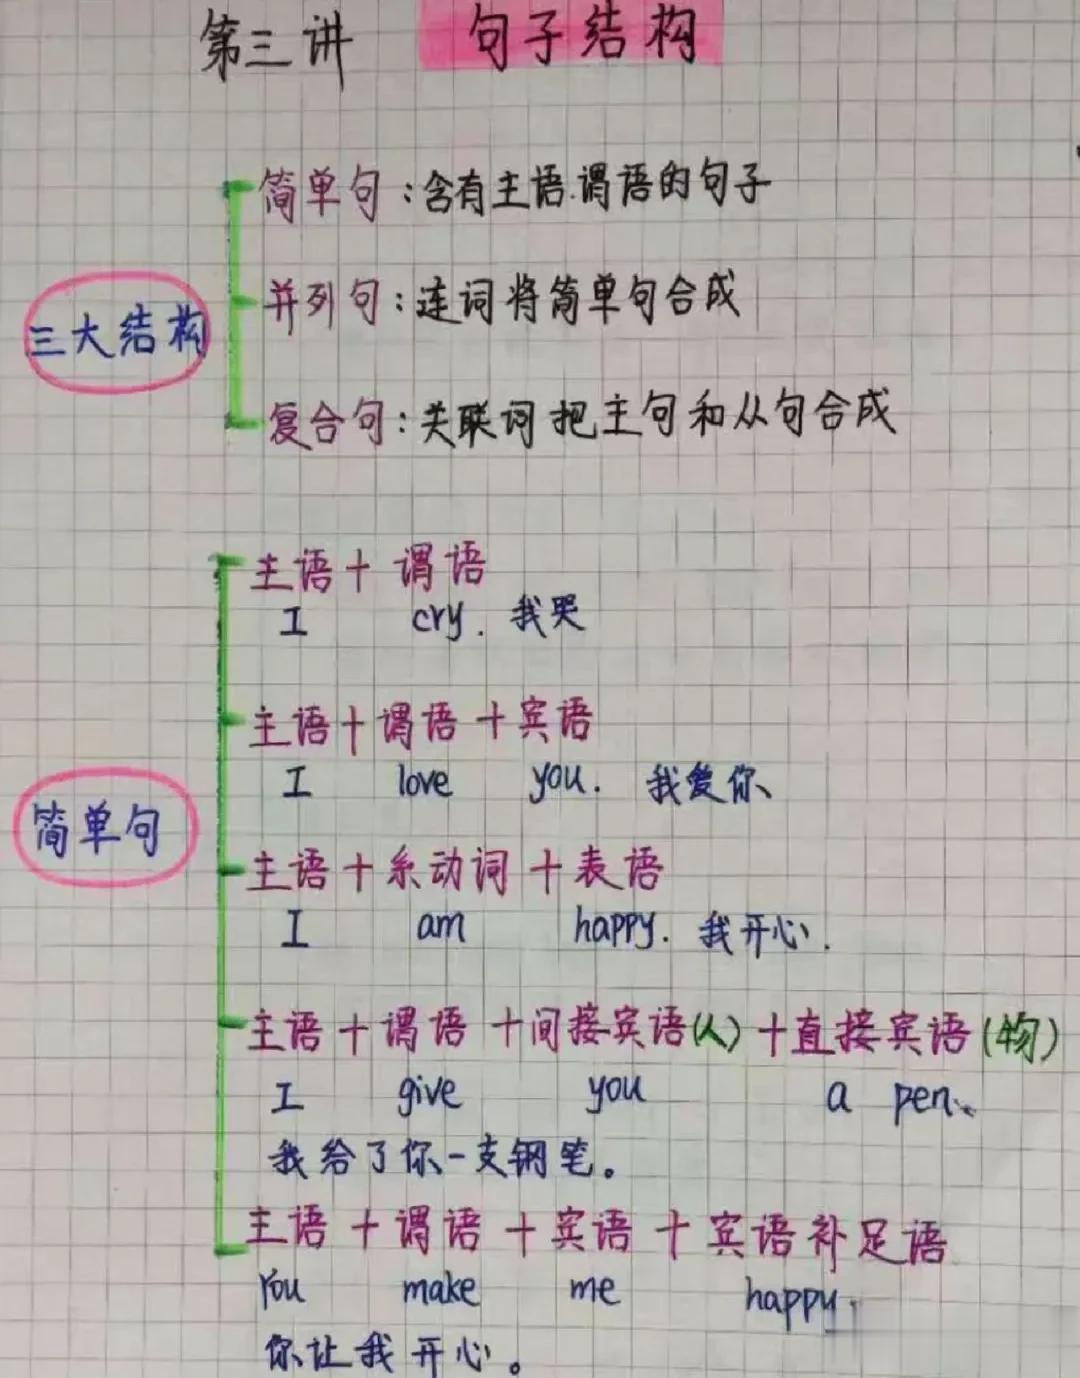 第三讲 句子结构
三大结构
简单句：含有主语.谓语的句子
并列句：连词将简单句合成
复合句：关联词把主句和从句合成
简单句
主语+谓语
I cry. 我哭
主语+谓语+宾语
I love you. 我爱你、
主语+系动词+表语
I am happy. 我开心.
主语+谓语+间接宾语(人)+直接宾语(物)
I give you a pen.
我给了你一支钢笔。
主语+谓语+宾语+宾语补足语
You make me happy.
你让我开心。